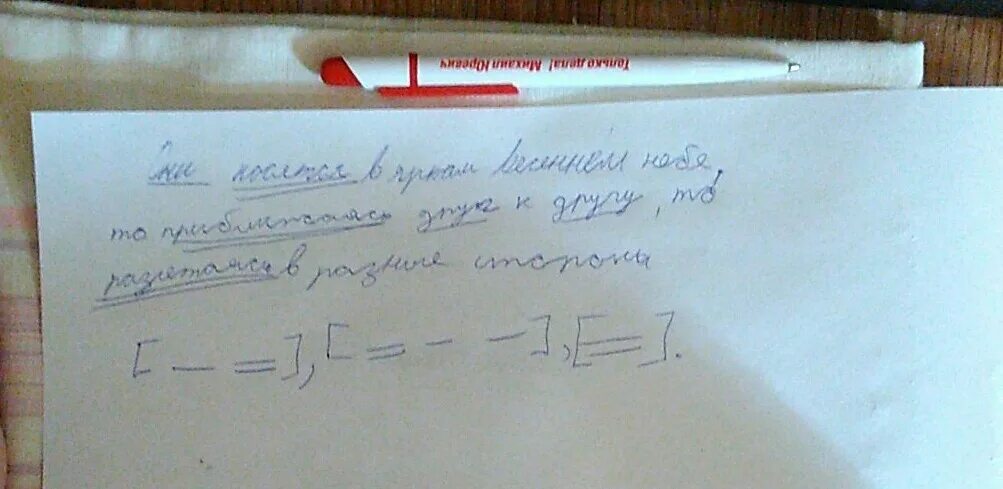 Только дела! Михаил Юревич
Они носятся в ярком весеннем небе,
то приближаясь друг к другу, то
разлетаясь в разные стороны
[— =], [= – –], [=].